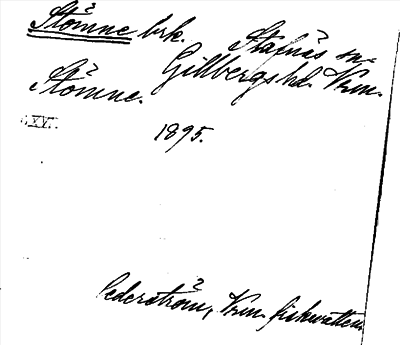 Stömne brk. Stafnäs sn.
Gillbergs hd. Vrm.
Stömne.
XV
1895.
Cederström, Vrm. fiskvatten